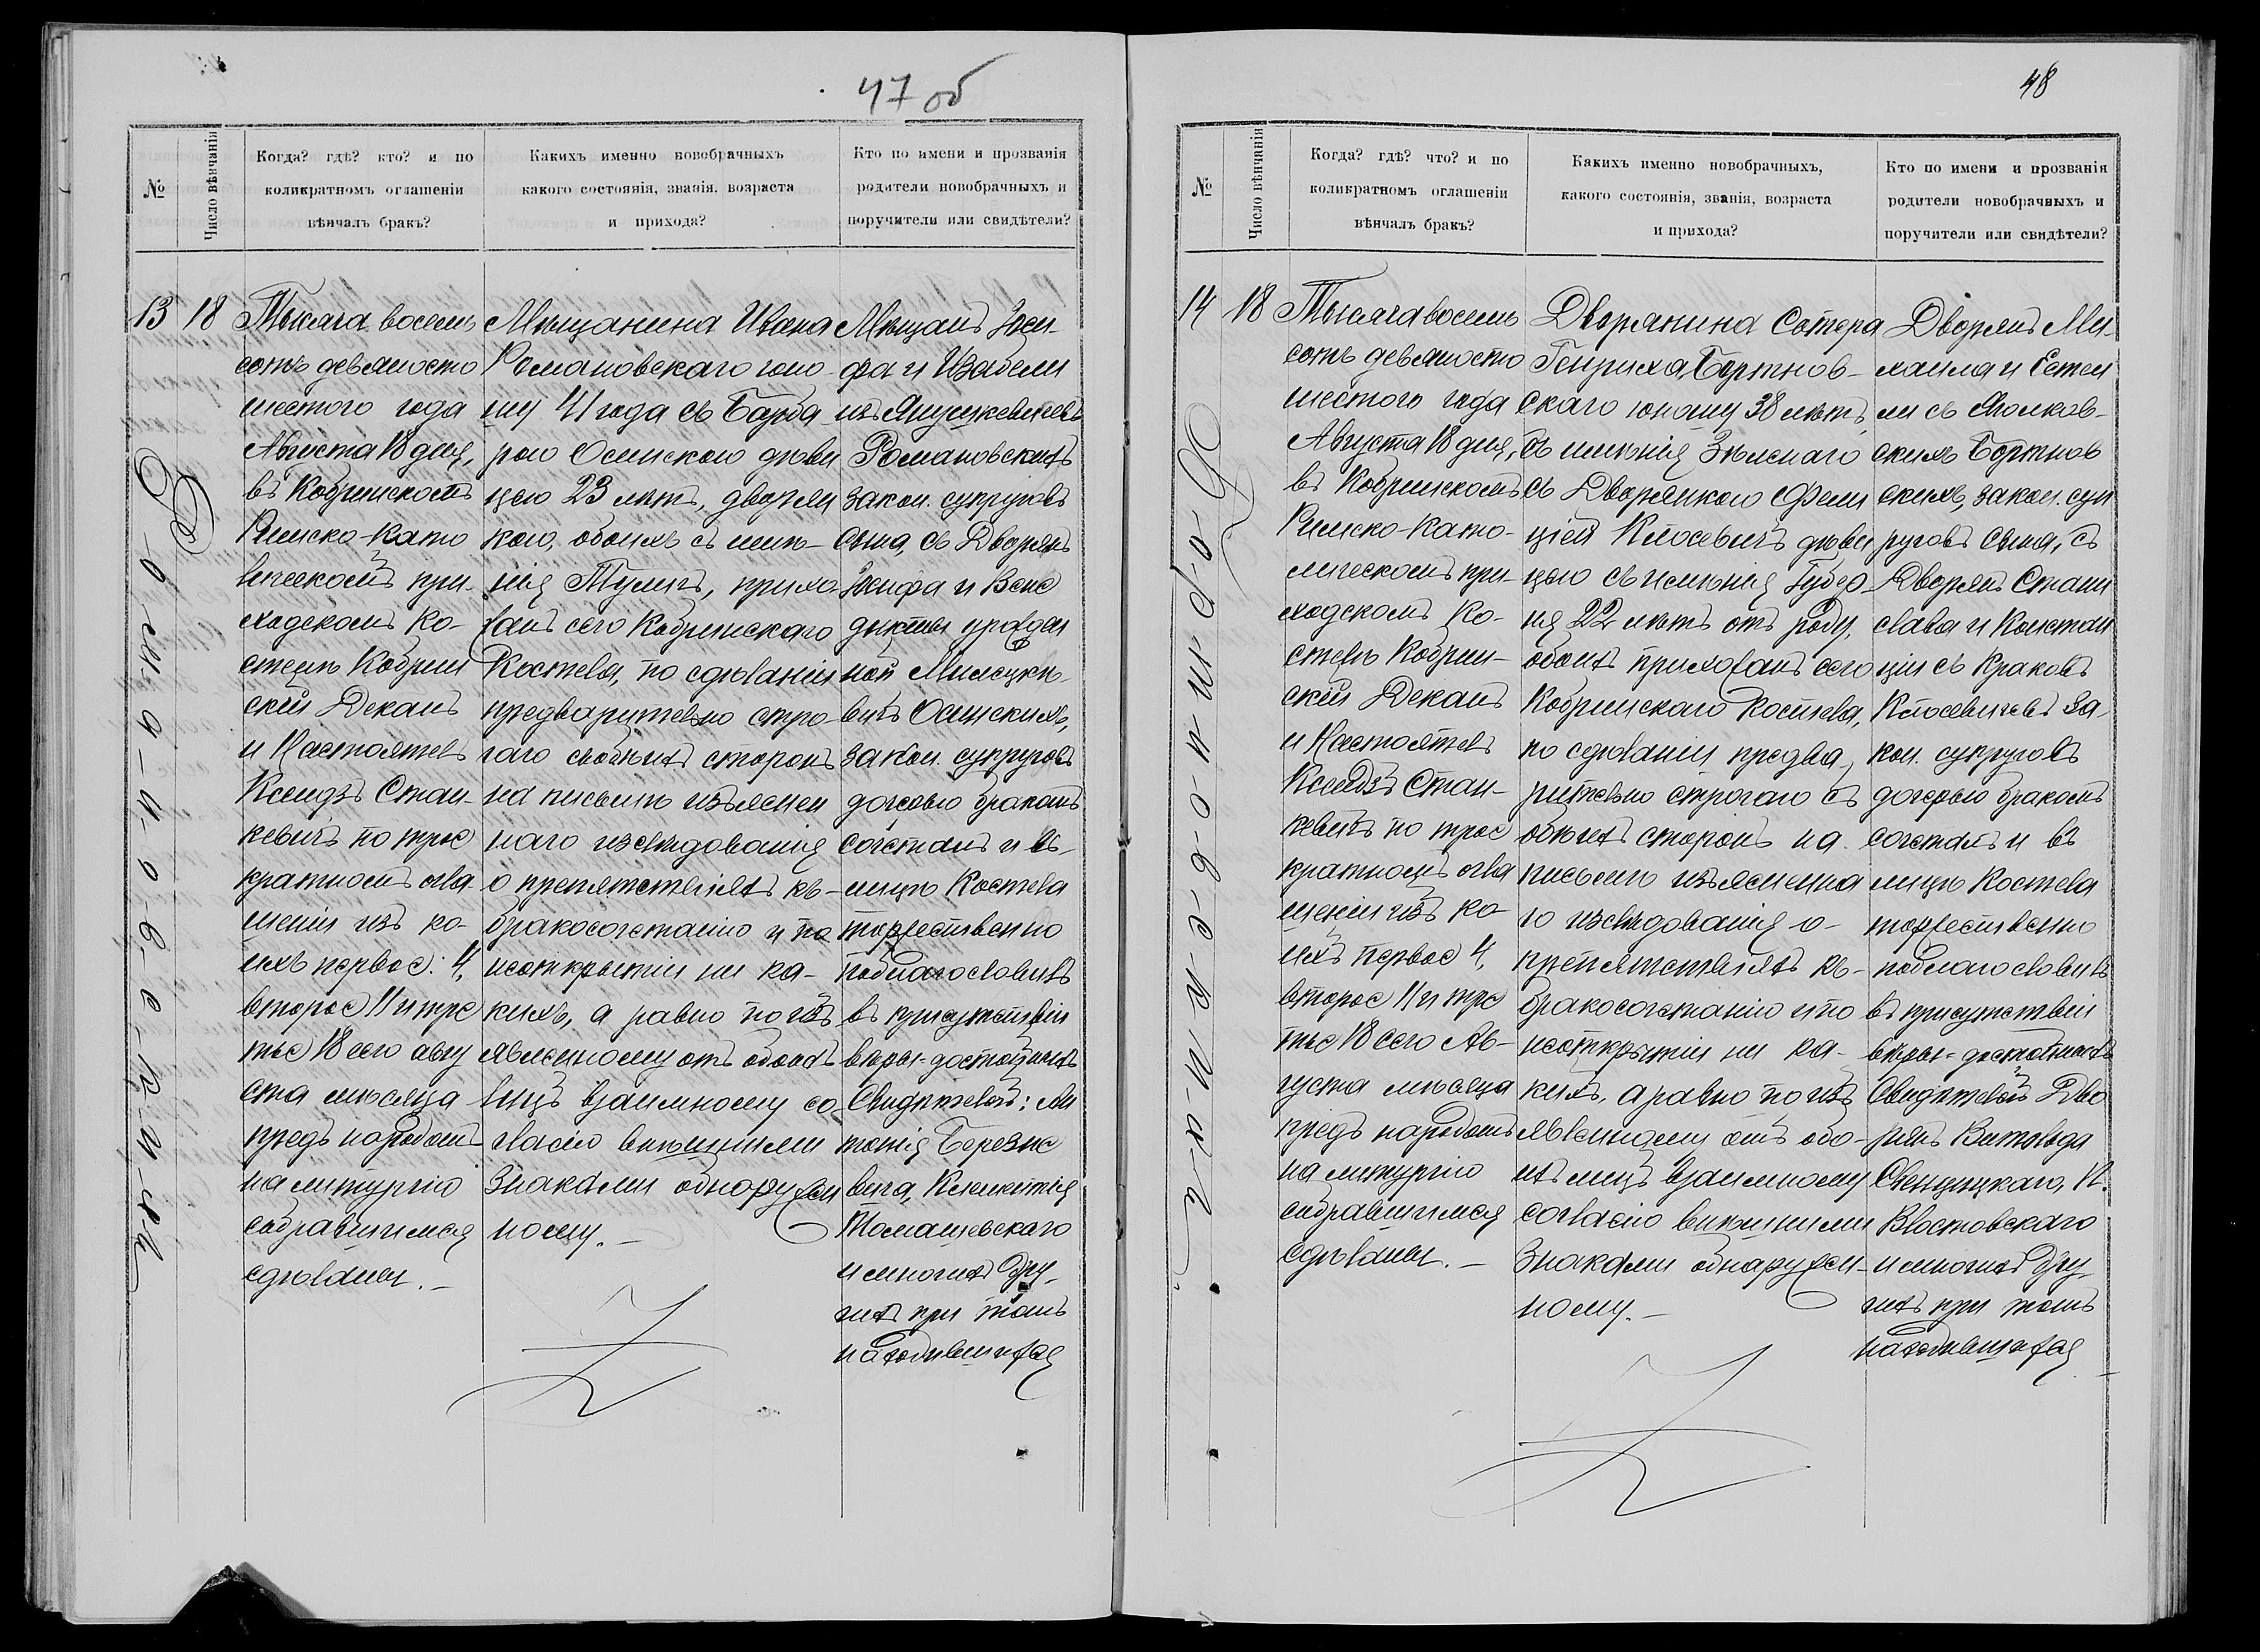 47 об
№
Число вѣнчанія
Когда? гдѣ? кто? и по
коликратномъ оглашеніи
вѣнчалъ бракъ?
Какихъ именно новобрачныхъ
какого состоянія, званія, возраста
и прихода?
Кто по имени и прозванія
родители новобрачныхъ и
поручители или свидѣтели?
13
18
Тысяча восемь
сотъ девяносто
шестого года
Августа 18 дня,
въ Кобринскомъ
Римско-Като
лическомъ при-
ходскомъ Ко-
стелѣ Кобрин
скій Деканъ
и Настоятель
Ксендзъ Стан-
кевичъ по трое
кратномъ огла
шеніи изъ ко-
ихъ первое: 4,
второе 11 и тре
тье 18 сего авгу
ста мѣсяца
предъ народомъ
на литургію
собравшимся
сдѣланы.—
Мѣщанина Ивана
Романовскаго юно-
шу 41 года съ Барба
рою Осинскою дѣви
цею 23 лѣтъ, дворян
кою, обоихъ съ имѣ-
нія Тулигъ, прихо-
жанъ сего Кобринскаго
Костела, по сдѣланіи
предварительно стро-
гаго съ обѣихъ сторонъ
на письмѣ изъяснен
наго изслѣдованія
о препятствіяхъ къ-
бракосочетанію и по
неоткрытіи ни ка-
кихъ, а равно по изъ
явленному отъ обоихъ
лицъ взаимному со-
гласію внѣшними
знаками обнаружен
ному.—
Мѣщанъ Іоси-
фа и Изабели
изъ Янушкевичевъ
Романовскихъ
закон. супруговъ
сына, съ Дворянъ
Іосифа и Вене
дыкты урожден
ной Милецке-
вичъ Осинскихъ,
закон. супруговъ
дочерью бракомъ
сочеталъ и въ-
лицѣ Костела
торжественно
поблагословилъ
въ присутствіи
вѣры-достойныхъ
Свидѣтелей: Ан
тонія Березне
вича, Клементія
Томашевскаго
и многихъ дру-
гихъ при томъ
находившихся
Р-о-м-а-н-о-в-с-к-і-й
48
№
Число вѣнчанія
Когда? гдѣ? что? и по
коликратномъ оглашеніи
вѣнчалъ бракъ?
Какихъ именно новобрачныхъ,
какого состоянія, званія, возраста
и прихода?
Кто по имени и прозванія
родители новобрачныхъ и
поручители или свидѣтели?
14
18
Тысяча восемь
сотъ девяносто
шестого года
Августа 18 дня,
въ Кобринскомъ
Римско-Като-
лическомъ при-
ходскомъ Ко-
стелѣ Кобрин-
скій Деканъ
и Настоятель
Ксендзъ Стан-
кевичъ по трое
кратномъ огла
шеніи изъ ко-
ихъ первое 4,
второе 11 и тре
тье 18 сего Ав-
густа мѣсяца
предъ народомъ
на литургію
собравшимся
сдѣланы.—
Дворянина Сотера
Генриха Бортнов-
скаго юношу 38 лѣтъ,
съ имѣнія
съ Дворянкою Фели
ціей Клосевичъ дѣви
цею съ имѣнія Губер-
ня 22 лѣтъ отъ роду,
обоихъ прихожанъ сего
Кобринскаго Костела,
по сдѣланіи предва-
рительно строгаго съ
обѣихъ сторонъ на
письмѣ изъяснена
го изслѣдованія о-
препятствіяхъ къ-
бракосочетанію и по
неоткрытіи ни ка-
кихъ, а равно по изъ
явленному отъ обо-
ихъ лицъ взаимному
согласію внѣшними
знаками обнаружен-
ному.—
Дворянъ Ми-
хаила и Естел
ли съ Яголков-
скихъ Бортнов
скихъ, закон. суп
руговъ сына, съ
Дворянъ Стани
слава и Констан
ціи съ Краковъ
Клосевичевъ за-
кон. супруговъ
дочерью бракомъ
сочеталъ и въ
лицѣ Костела
торжественно
поблагословилъ
въ присутствіи
вѣры-достойныхъ
Свидѣтелей Дво
рянъ Витольда
Свенцицкаго, К.
Властовскаго
и многихъ дру-
гихъ при томъ
находившихся